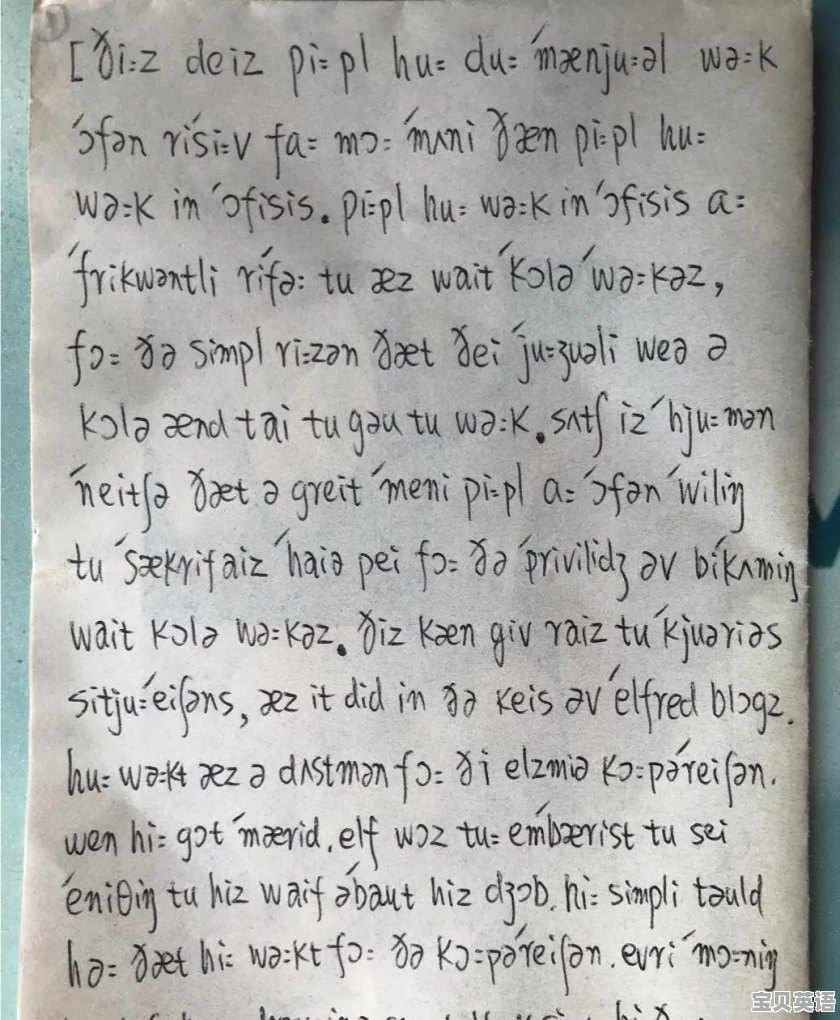 1
[ði:z deiz pi:pl hu: du: ˊmænju:əl wə:k
ˊɔfən riˊsi:v fa: mɔ: ˊmʌni ðæn pi:pl hu:
wə:k in ˊɔfisis. pi:pl hu: wə:k in ˊɔfisis a:
ˊfrikwəntli riˊfə: tu æz wait ˊkɔlə ˊwə:kəz,
fɔ: ðə simpl ri:zən ðæt ðei ˊju:ʒuəli weə ə
kɔlə ænd tai tu gəu tu wə:k. sʌtʃ iz ˊhju:mən
ˊneitʃə ðæt ə greit ˊmeni pi:pl a: ˊɔfən ˊwiliŋ
tu ˊsækrifaiz ˊhaiə pei fɔ: ðə ˊprivilidʒ əv biˊkʌmiŋ
wait kɔlə wə:kəz. ðiz kæn giv raiz tu ˊkjuəriəs
sitju:ˊeiʃəns, æz it did in ðə keis əv ˊelfred blɔgz.
hu: wə:kt æz ə dʌstmən fɔ: ði elzmiə kɔ:pəˊreiʃən.
wen hi: gɔt ˊmærid, elf wɔz tu: emˊbærist tu sei
ˊeniθiŋ tu hiz waif əˊbaut hiz dʒɔb. hi: simpli təuld
hə: ðæt hi: wə:kt fɔ: ðə kɔ:pəˊreiʃən. evri ˊmɔ:niŋ
宝贝英语